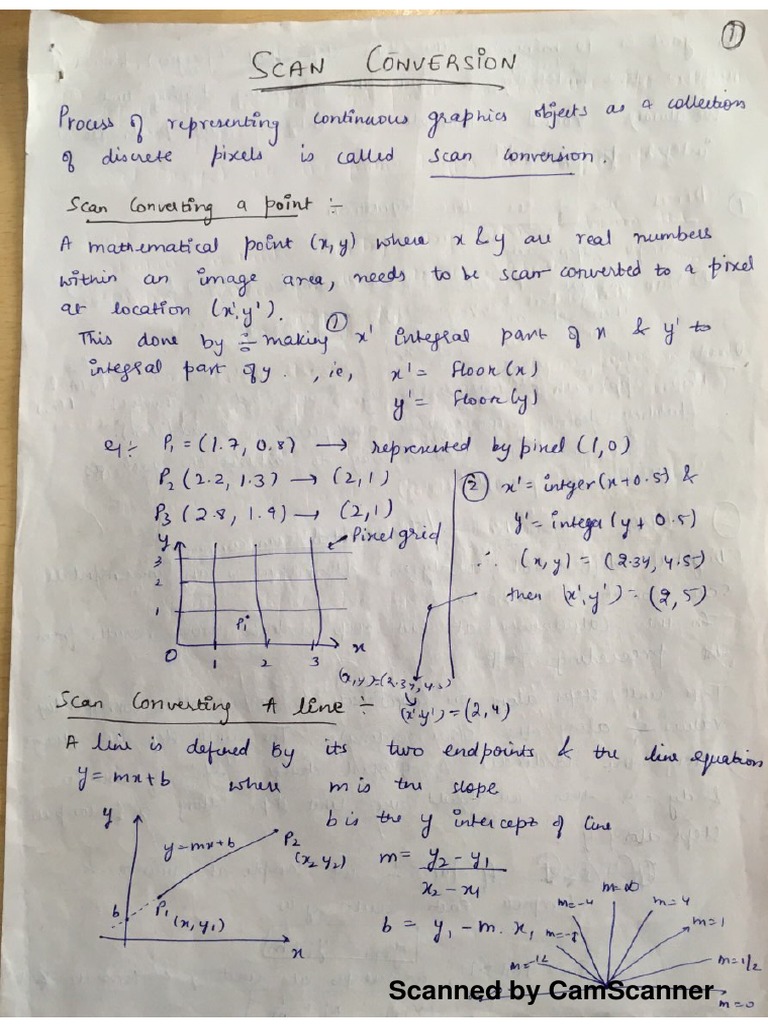 ①
SCAN CONVERSION
Process of representing continuous graphics objects as a collection
of discrete pixels is called scan conversion.
Scan Converting a point :-
A mathematical point (x, y) where x & y are real numbers
within an image area, needs to be scan converted to a pixel
at location (x', y').
This done by :- making ① x' integral part of x & y' to
integral part of y. , ie, x' = floor(x)
y' = floor(y)
eg :- P₁ = (1.7, 0.8) → represented by pixel (1,0)
P₂ (2.2, 1.3) → (2,1)
P₃ (2.8, 1.9) → (2,1)
② x' = integer(x+0.5) &
y' = intega(y+0.5)
∴ (x,y) = (2.34, 4.5)
then (x',y') = (2,5)
y
Pixel grid
3
2
1
P₁
0 1 2 3 x
(x,y)=(2.37, 4.5)
(x'y') = (2,4)
Scan Converting A line :-
A line is defined by its two endpoints & the line equation
y = mx+b where m is the slope
b is the y intercept of line
y
y=mx+b
P₂
(x₂ y₂)
P₁
(x, y₁)
b
x
m = y₂ - y₁
x₂ - x₁
b = y₁ - m. x₁
m=∞
m=-4
m=4
m=1
m=1/2
m=0
Scanned by CamScanner